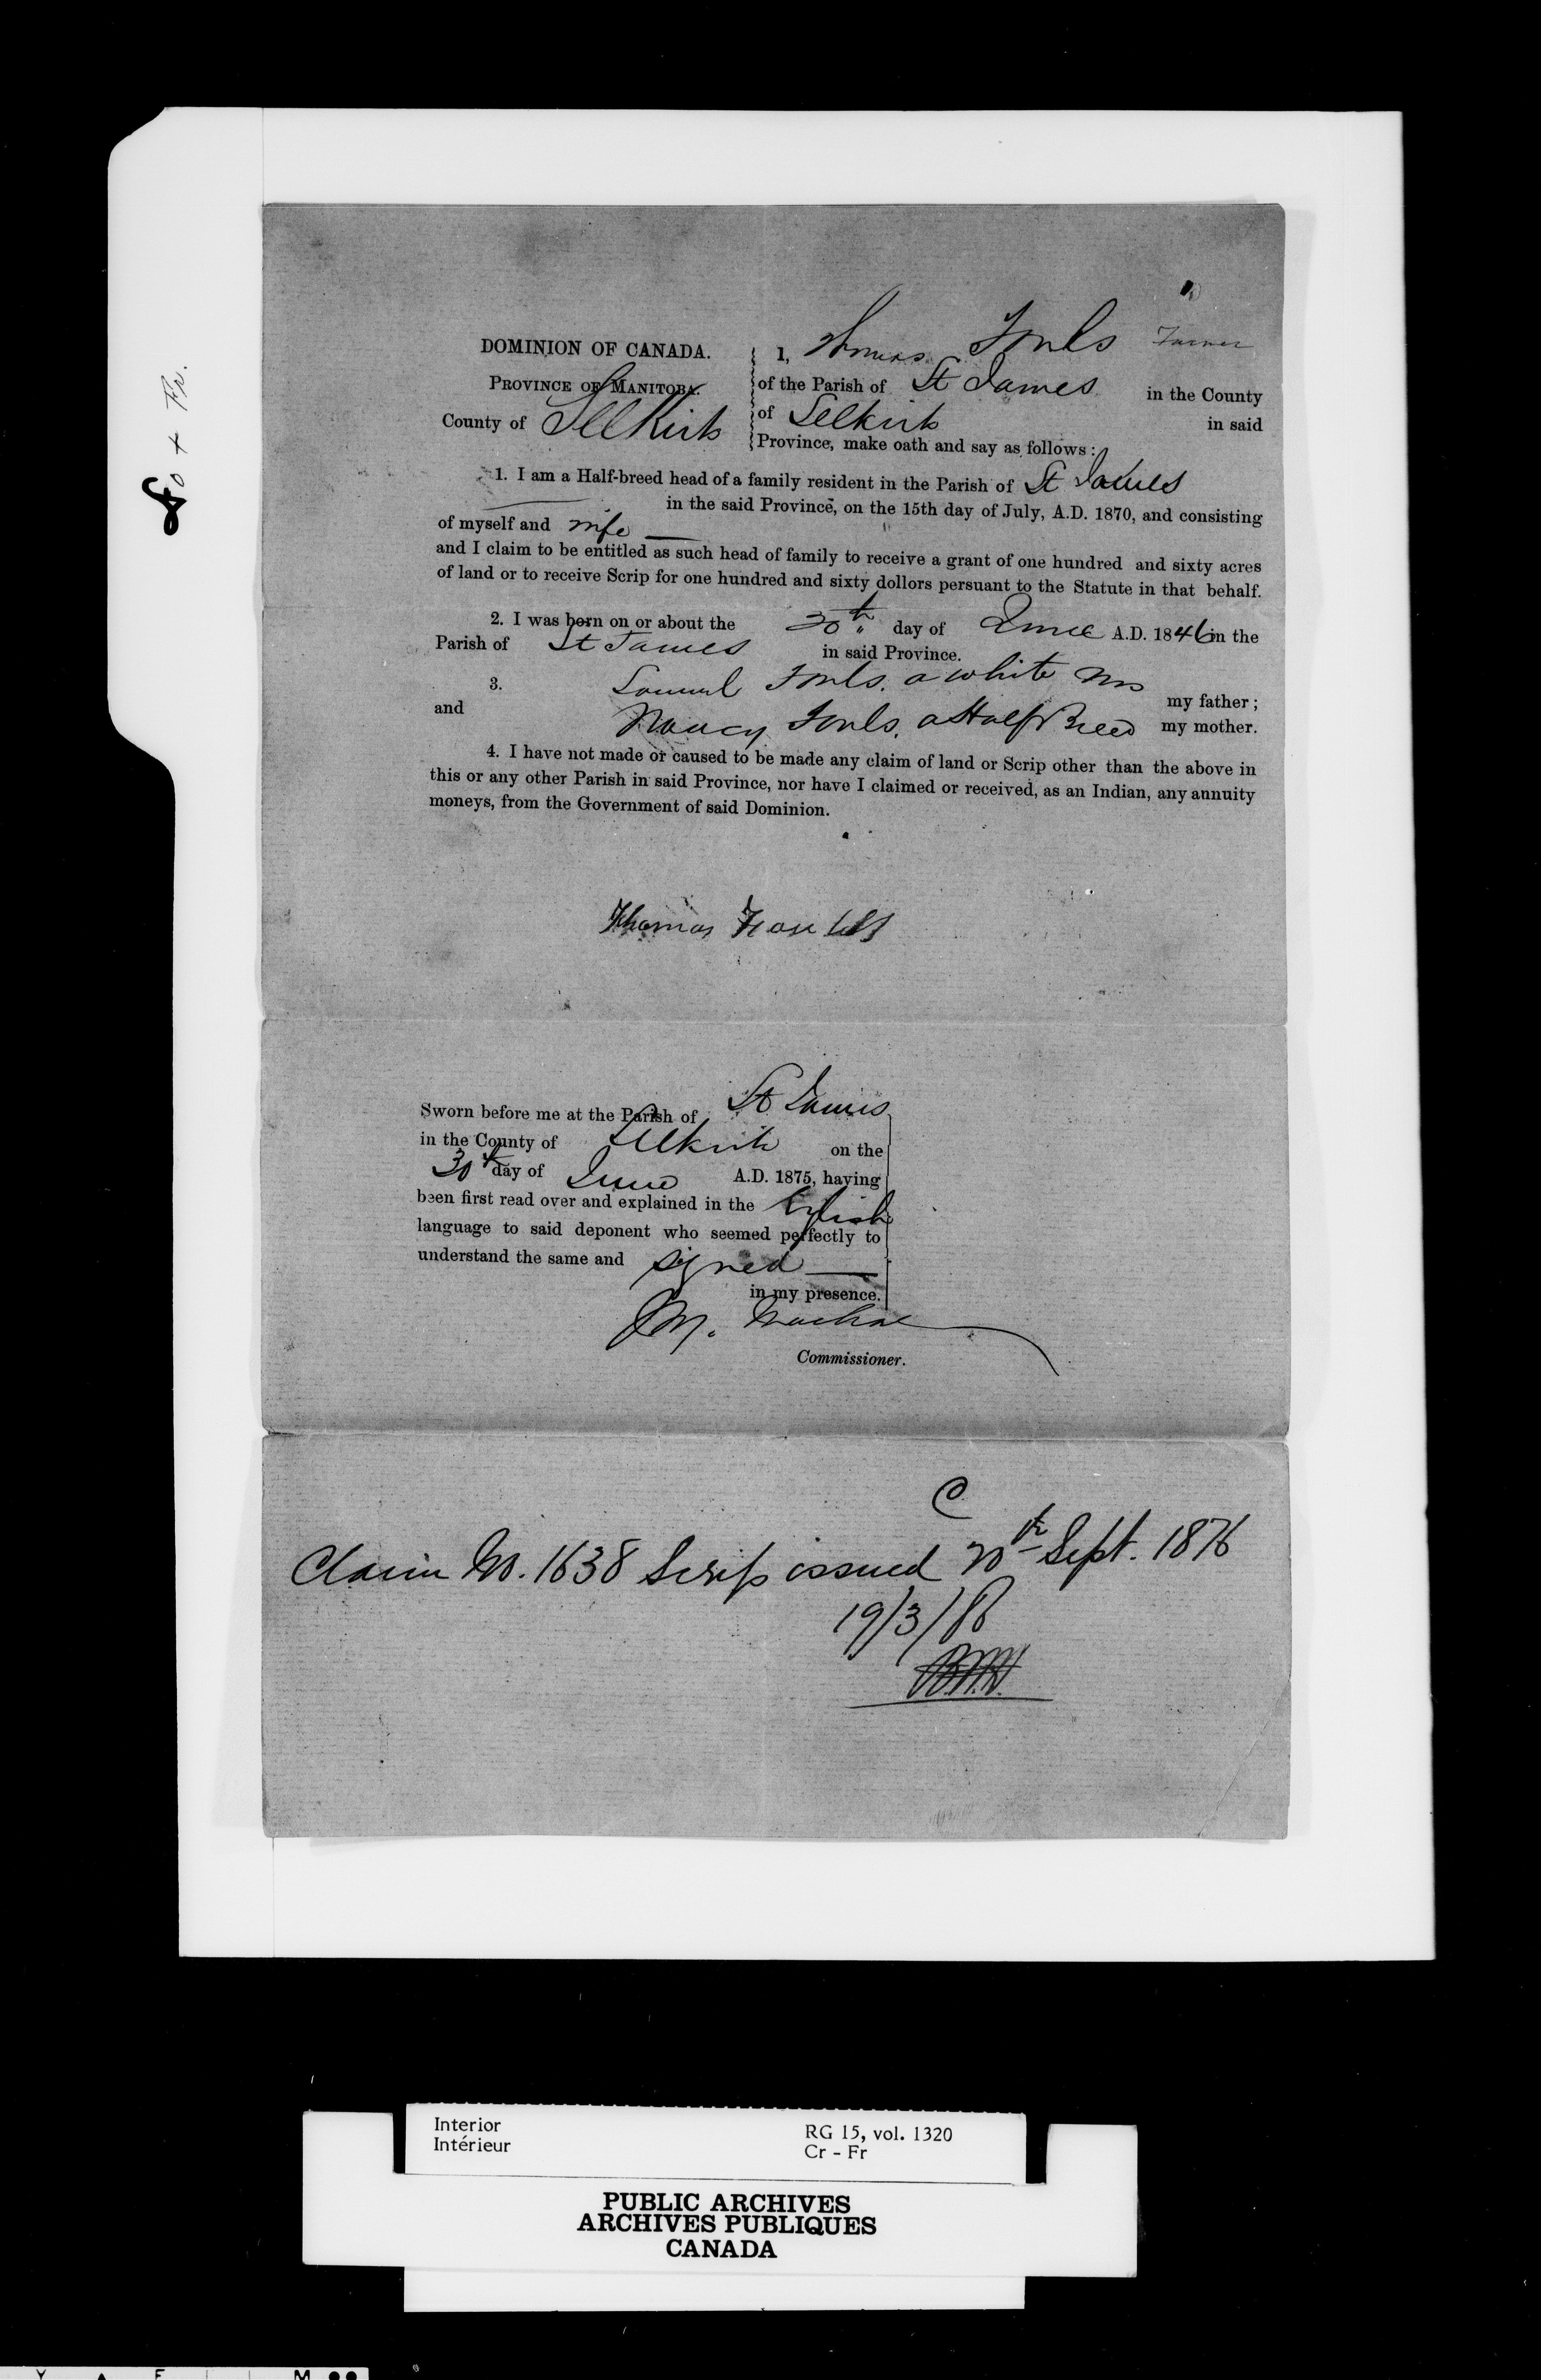 Fo + Fr.
DOMINION OF CANADA.
PROVINCE OF MANITOBA.
County of Selkirk
I, Thomas Fouls Farmer
of the Parish of St James in the County
of Selkirk in said
Province, make oath and say as follows:
1. I am a Half-breed head of a family resident in the Parish of St James
in the said Province, on the 15th day of July, A.D. 1870, and consisting
of myself and wife
and I claim to be entitled as such head of family to receive a grant of one hundred and sixty acres
of land or to receive Scrip for one hundred and sixty dollors persuant to the Statute in that behalf.
2. I was born on or about the 30th day of June A.D. 1846 in the
Parish of St James in said Province.
3. Samuel Fouls. a white my father;
and Nancy Fouls. a Half Breed my mother.
4. I have not made or caused to be made any claim of land or Scrip other than the above in
this or any other Parish in said Province, nor have I claimed or received, as an Indian, any annuity
moneys, from the Government of said Dominion.
Thomas
Sworn before me at the Parish of St James
in the County of Selkirk on the
30th day of June A.D. 1875, having
been first read over and explained in the English
language to said deponent who seemed perfectly to
understand the same and signed
in my presence.
J.M. Machar
Commissioner.
C
Claim No. 1638 Scrip issued 20th Sept. 1876
19/3/86
Interior
Intérieur
RG 15, vol. 1320
Cr - Fr
PUBLIC ARCHIVES
ARCHIVES PUBLIQUES
CANADA